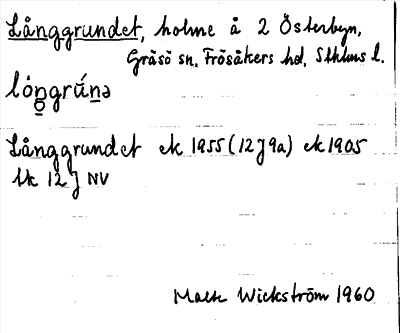 Långgrundet, holme å 2 Österbyn,
Gräsö sn, Frösåkers hd, Sthlms l.
lån̲grún̲ə
Långgrundet ek 1955 (12J9a) ek 1905
tk 12 J NV
Mats Wickström 1960